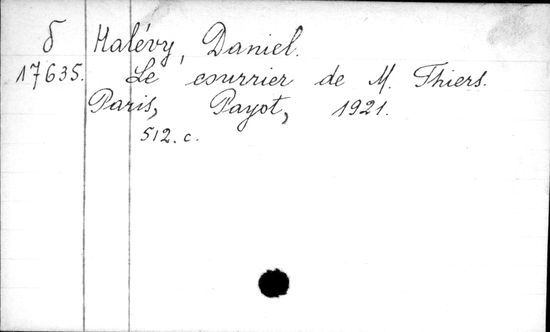 б Halévy, Daniel.
17635. Le courrier de M. Thiers.
Paris, Payot, 1921.
512. c.